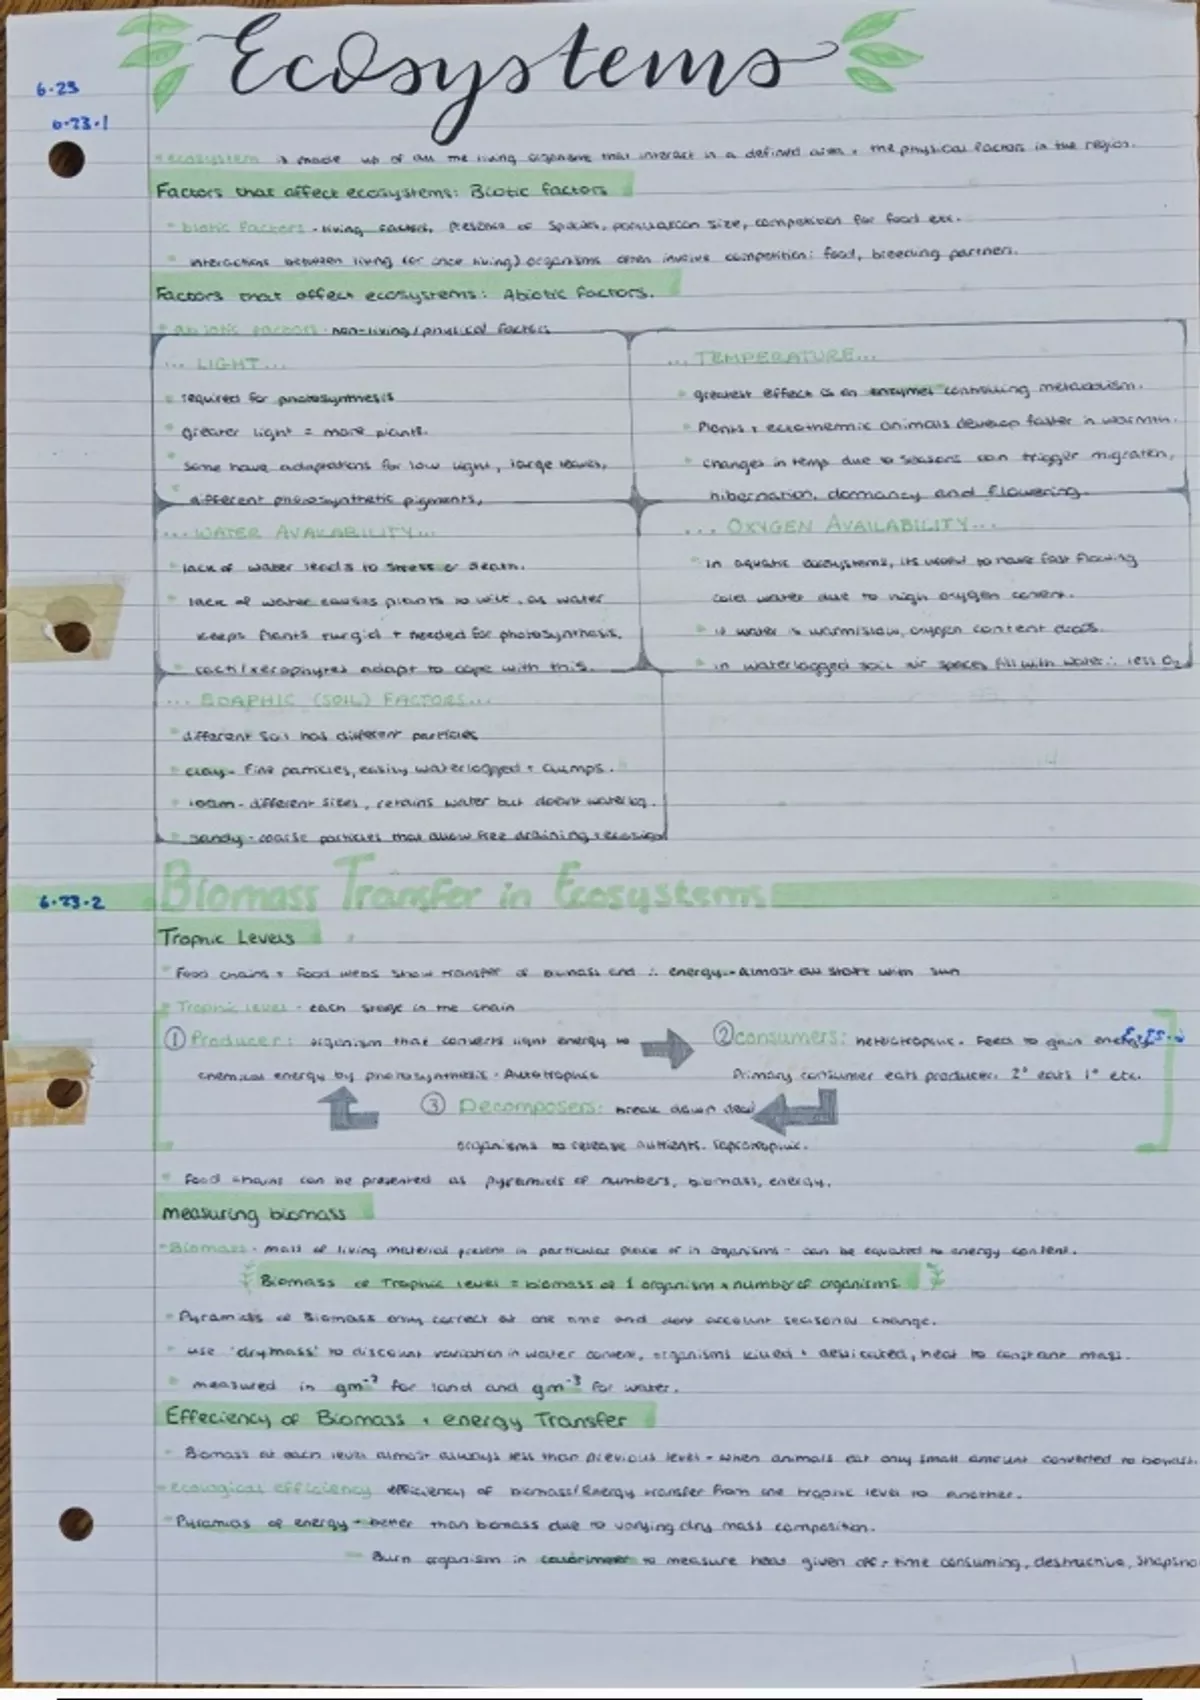 Ecosystems
6.23
6.23.1
ecosystem is made up of all the living organisms that interact in a defined area + the physical factors in the region.
Factors that affect ecosystems: Biotic factors
biotic factors - living factors, presence of species, population size, competition for food etc.
interactions between living (or once living) organisms often involve competition: food, breeding partners.
Factors that affect ecosystems: Abiotic factors.
abiotic factors - non-living/physical factors
... LIGHT...
required for photosynthesis
greater light = more plants.
some have adaptations for low light, large leaves,
different photosynthetic pigments,
... TEMPERATURE...
greatest effect is on enzymes controlling metabolism.
Plants + ectothermic animals develop faster in warmth.
changes in temp due to seasons can trigger migration,
hibernation, dormancy and flowering.
... WATER AVAILABILITY...
lack of water leads to stress & death.
lack of water causes plants to wilt, as water
keeps plants turgid + needed for photosynthesis.
cacti/xerophytes adapt to cope with this.
... OXYGEN AVAILABILITY...
in aquatic ecosystems, its useful to have fast flowing
cold water due to high oxygen content.
if water is warm/slow, oxygen content drops.
in waterlogged soil air spaces fill with water ∴ less O2
... EDAPHIC (SOIL) FACTORS...
different soil has different particles
clay - fine particles, easily waterlogged + clumps.
loam - different sizes, retains water but doesnt waterlog.
sandy - coarse particles that allow free draining + erosion
6.23.2
Biomass Transfer in Ecosystems
Trophic Levels
Food chains + food webs show transfer of biomass and ∴ energy - almost all start with sun
Trophic level - each stage in the chain
① Producer: organism that converts light energy to
chemical energy by photosynthesis. Autotrophic
② consumers: heterotrophic. Feed to gain energy
Primary consumer eats producer. 2° eats 1° etc.
③ Decomposers: break down dead
organisms to release nutrients. Saprotrophic.
food chains can be presented as pyramids of numbers, biomass, energy.
measuring biomass
Biomass - mass of living material present in particular place or in organisms - can be equated to energy content.
Biomass of Trophic level = biomass of 1 organism x number of organisms.
Pyramids of Biomass only correct at one time and dont account seasonal change.
use 'drymass' to discount variation in water content, organisms killed + desiccated, heat to constant mass.
measured in gm⁻² for land and gm⁻³ for water.
Effeciency of Biomass + energy Transfer
Biomass at each level almost always less than previous level - when animals eat only small amount converted to biomass.
ecological efficiency efficiency of biomass/Energy transfer from one trophic level to another.
Pyramids of energy - better than biomass due to varying dry mass composition.
Burn organism in calorimeter to measure heat given off - time consuming, destructive, snapsho